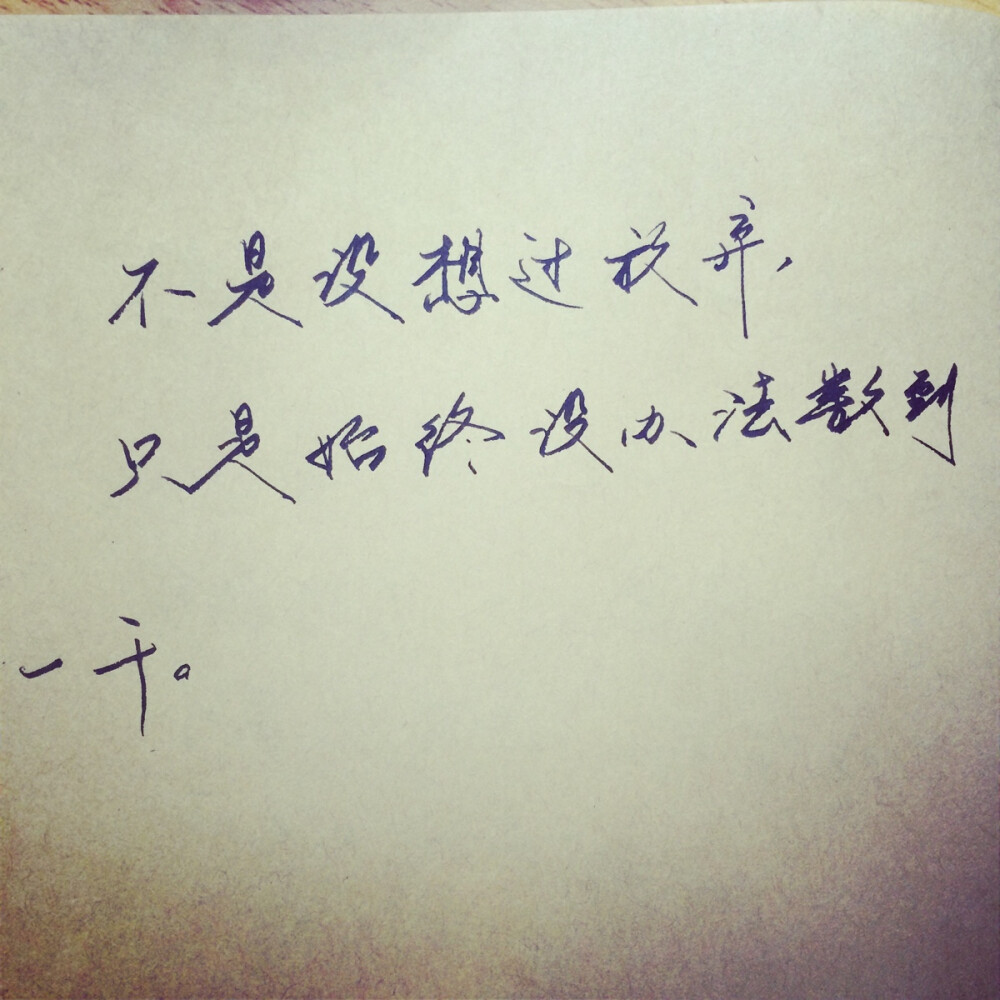 不是没想过放弃，
只是始终没办法数到
一千。